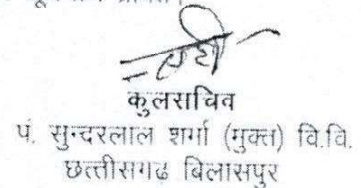 कुलसचिव
पं. सुन्दरलाल शर्मा (मुक्त) वि.वि.
छत्तीसगढ़ बिलासपुर